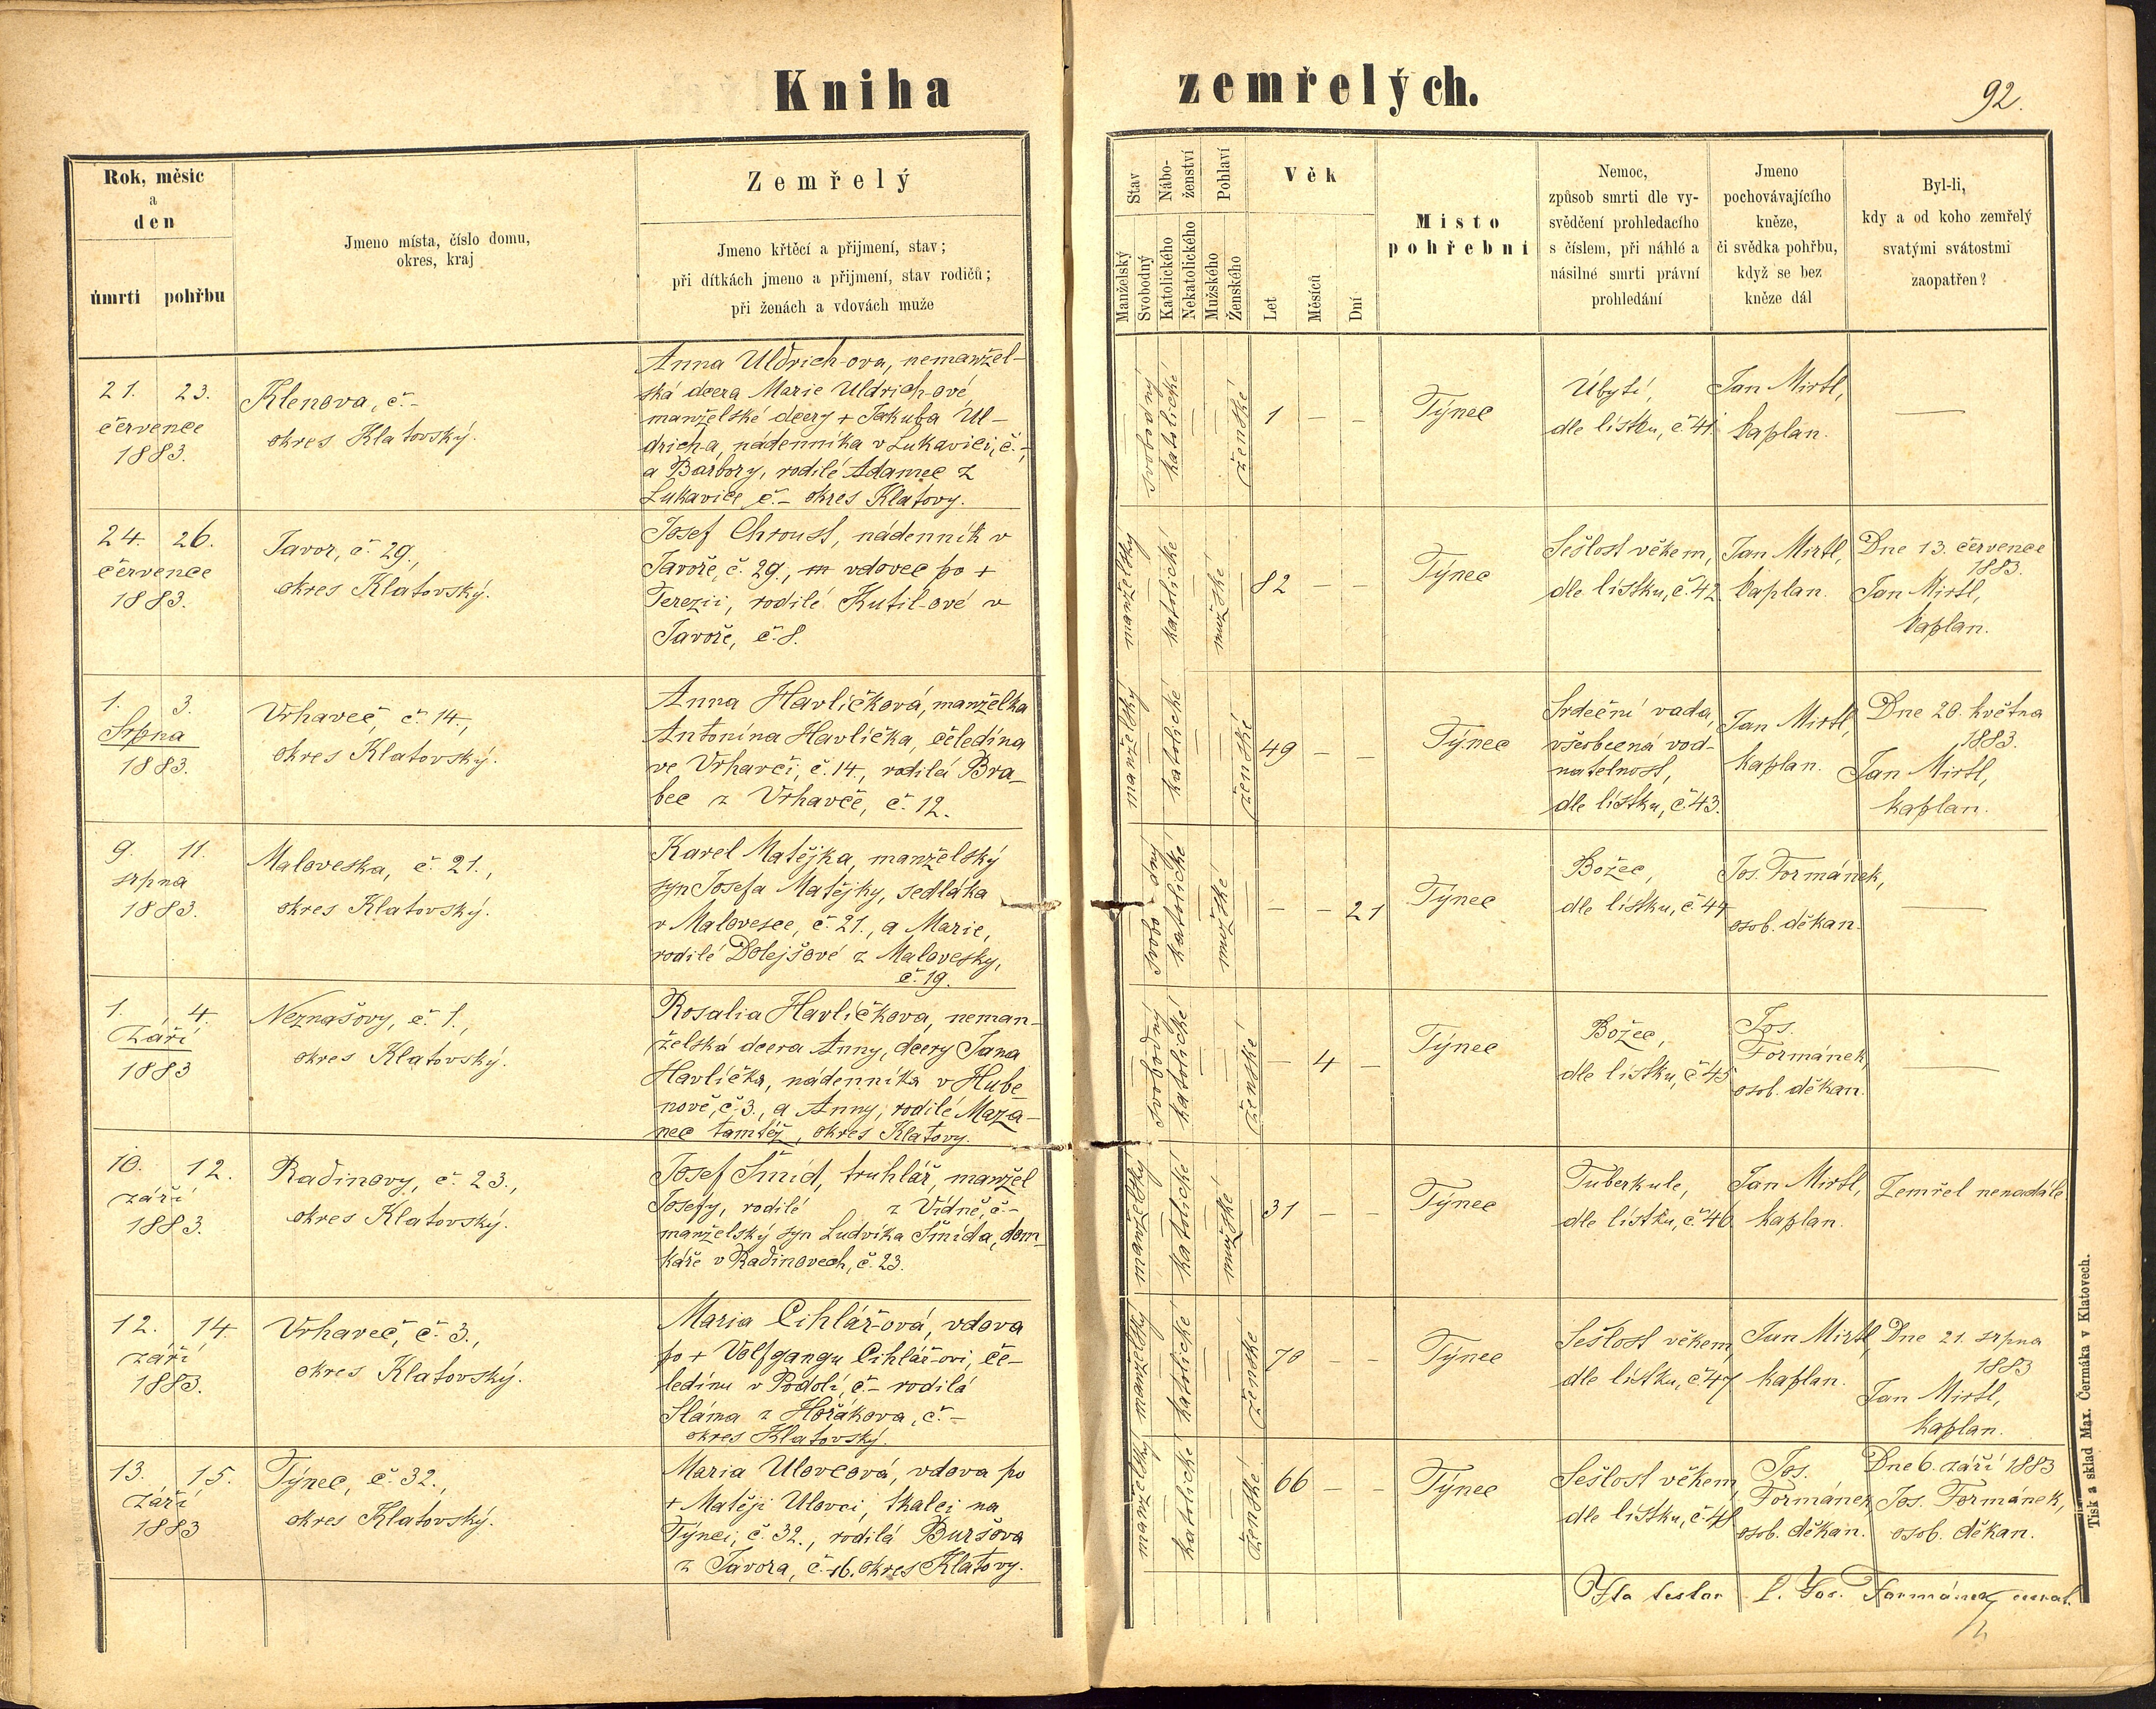 Kniha zemřelých.
92.
Rok, měsíc
a
den
úmrtí pohřbu
Jmeno místa, číslo domu,
okres, kraj
Zemřelý
Jmeno křtěcí a přijmení, stav;
při dítkách jmeno a přijmení, stav rodičů;
při ženách a vdovách muže
Stav
Manželský
Svobodný
Nábo-
ženství
Katolického
Nekatolického
Pohlaví
Mužského
Ženského
Věk
Let
Měsíců
Dní
Místo
pohřební
Nemoc,
způsob smrti dle vy-
svědčení prohledacího
s číslem, při náhlé a
násilné smrti právní
prohledání
Jmeno
pochovávajícího
kněze,
či svědka pohřbu,
když se bez
kněze dál
Byl-li,
kdy a od koho zemřelý
svatými svátostmi
zaopatřen?
21. 23.
července
1883.
Klenova, č. -
okres Klatovský.
Anna Uldrich-ova, nemanžel-
ská dcera Marie Uldrich-ové,
manželské dcery + Jakuba Ul-
drich-a, nádenníka v Lukavici, č. -,
a Barbory, rodilé Adamec z
Lukavice, č. - okres Klatovy.
svobodný
katolické
ženské
1 - -
Týnec
Úbytí,
dle lístku, č. 41.
Jan Mirtl,
kaplan.
-
24. 26.
července
1883.
Javor, č. 29.,
okres Klatovský.
Josef Chroust, nádenník v
Javoře, č. 29., vdovec po +
Terezii, rodilé Kutil-ové v
Javoře, č. 8.
manželský
katolické
mužské
82 - -
Týnec
Sešlost věkem,
dle lístku, č. 42
Jan Mirtl,
kaplan.
Dne 13. července
1883.
Jan Mirtl,
kaplan.
1. 3.
Srpna
1883.
Vrhaveč, č. 14.,
okres Klatovský.
Anna Havlíčková, manželka
Antonína Havlíčka, čeledína
ve Vrhavči, č. 14., rodilá Bra-
bec z Vrhavče, č. 12.
manželský
katolické
ženské
49 - -
Týnec
Srdeční vada,
všeobecná vod-
natelnost,
dle lístku, č. 43.
Jan Mirtl,
kaplan.
Dne 20. května
1883.
Jan Mirtl,
kaplan.
9. 11.
srpna
1883.
Maloveska, č. 21.,
okres Klatovský.
Karel Matějka, manželský
syn Josefa Matějky, sedláka
v Malovesce, č. 21., a Marie,
rodilé Dolejšové z Malovesky,
č. 19.
svobo-dný
katolické
mužské
- - 21
Týnec
Božec,
dle lístku, č. 44
Jos. Formánek,
osob. děkan.
-
1. 4.
Září
1883
Neznašovy, č. 1.,
okres Klatovský.
Rosalia Havlíčkova, neman-
želská dcera Anny, dcery Jana
Havlíčka, nádenníka v Hube
nově, č. 3., a Anny, rodilé Maza-
nec tamtéž, okres Klatovy.
svobodný
katolické
ženské
- 4 -
Týnec
Božec,
dle lístku, č. 45
Jos.
Formánek,
osob. děkan.
-
10. 12.
září
1883.
Radinovy, č. 23.,
okres Klatovský.
Josef Šmíd, truhlář, manžel
Josefy, rodilé z Vídně, č. -,
manželský syn Ludvíka Šmída, dom-
káře v Radinovech, č. 23.
manželský
katolické
mužské
31 - -
Týnec
Tuberkule,
dle lístku, č. 46
Jan Mirtl,
kaplan.
Zemřel nenadále
12. 14.
září
1883.
Vrhaveč, č. 3.,
okres Klatovský.
Maria Cihlář-ová, vdova
po + Volfgangu Cihlář-ovi, če-
ledínu v Podolí, č. - rodilá
Sláma z Hořákova, č. -
okres Klatovský.
manželský
katolické
ženské
70 - -
Týnec
Sešlost věkem,
dle lístku, č. 47
Jan Mirtl,
kaplan.
Dne 21. srpna
1883
Jan Mirtl,
kaplan.
13. 15.
Září
1883
Týnec, č. 32.,
okres Klatovský.
Maria Ulovcová, vdova po
+ Matěji Ulovci, tkalci na
Týnci, č. 32., rodilá Buršova
z Javora, č. 16. okres Klatovy.
manželský
katolické
ženské
66 - -
Týnec
Sešlost věkem,
dle lístku, č. 48
Jos.
Formánek,
osob. děkan.
Dne 6. září 1883
Jos. Formánek,
osob. děkan.
Ita testor P. Jos. Formánek, curat.
Tisk a sklad Max. Čermáka v Klatovech.